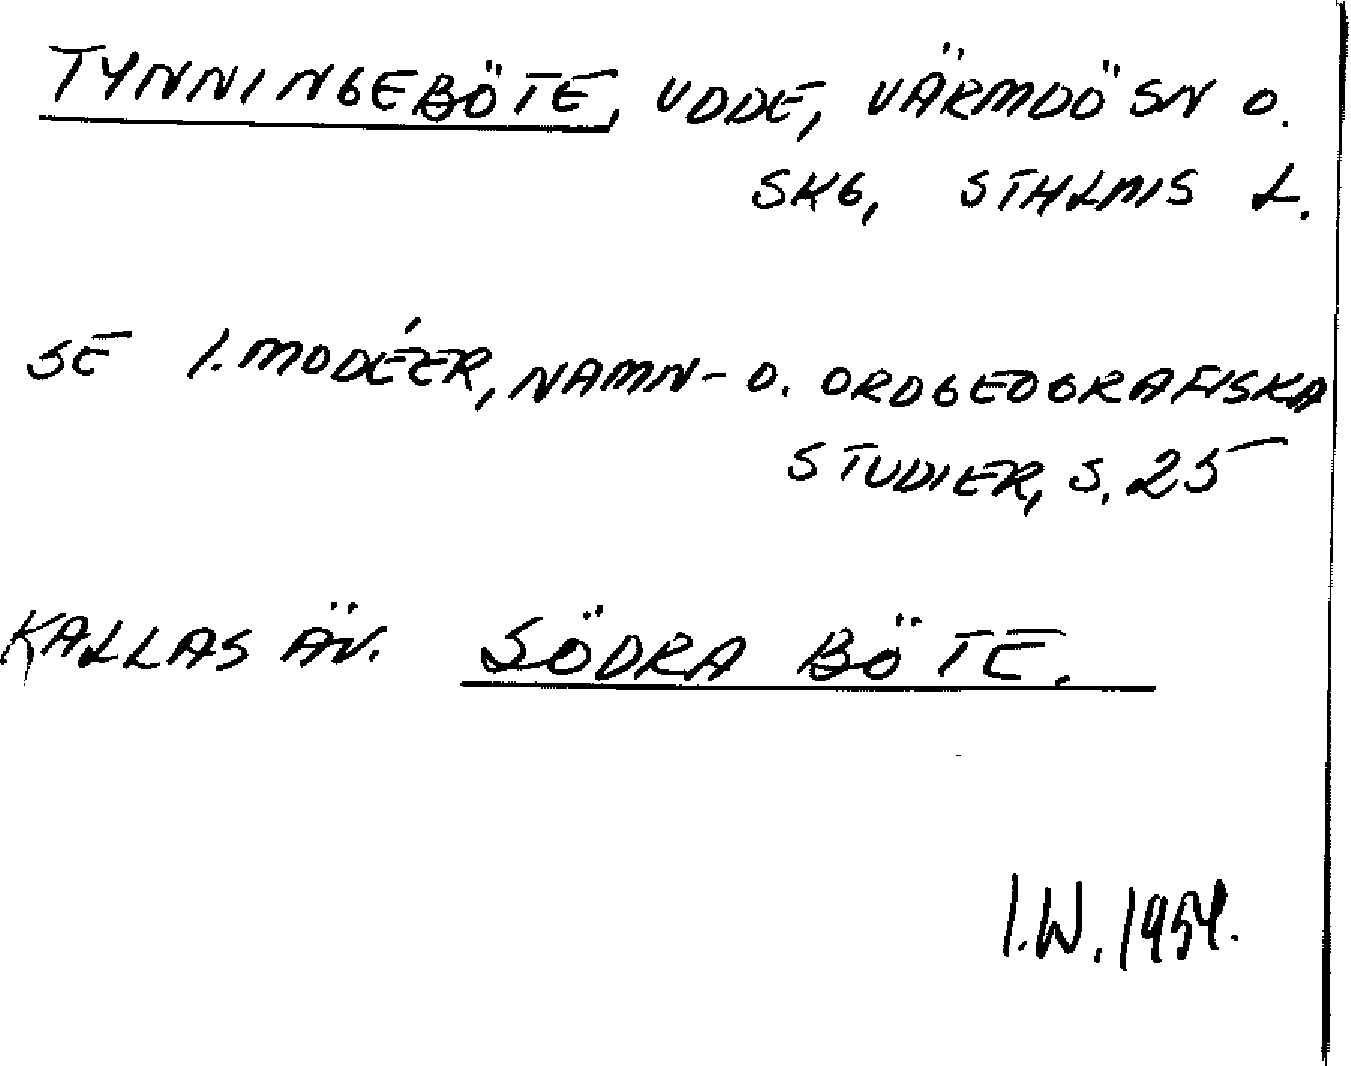 TYNNINGEBÖTE, UDDE, VÄRMDÖ SN O.
SKG, STHLMS L.
SE I. MODÉER, NAMN- O. ORDGEOGRAFISKA
STUDIER, S. 25
KALLAS ÄV. SÖDRA BÖTE.
I.W. 1954.